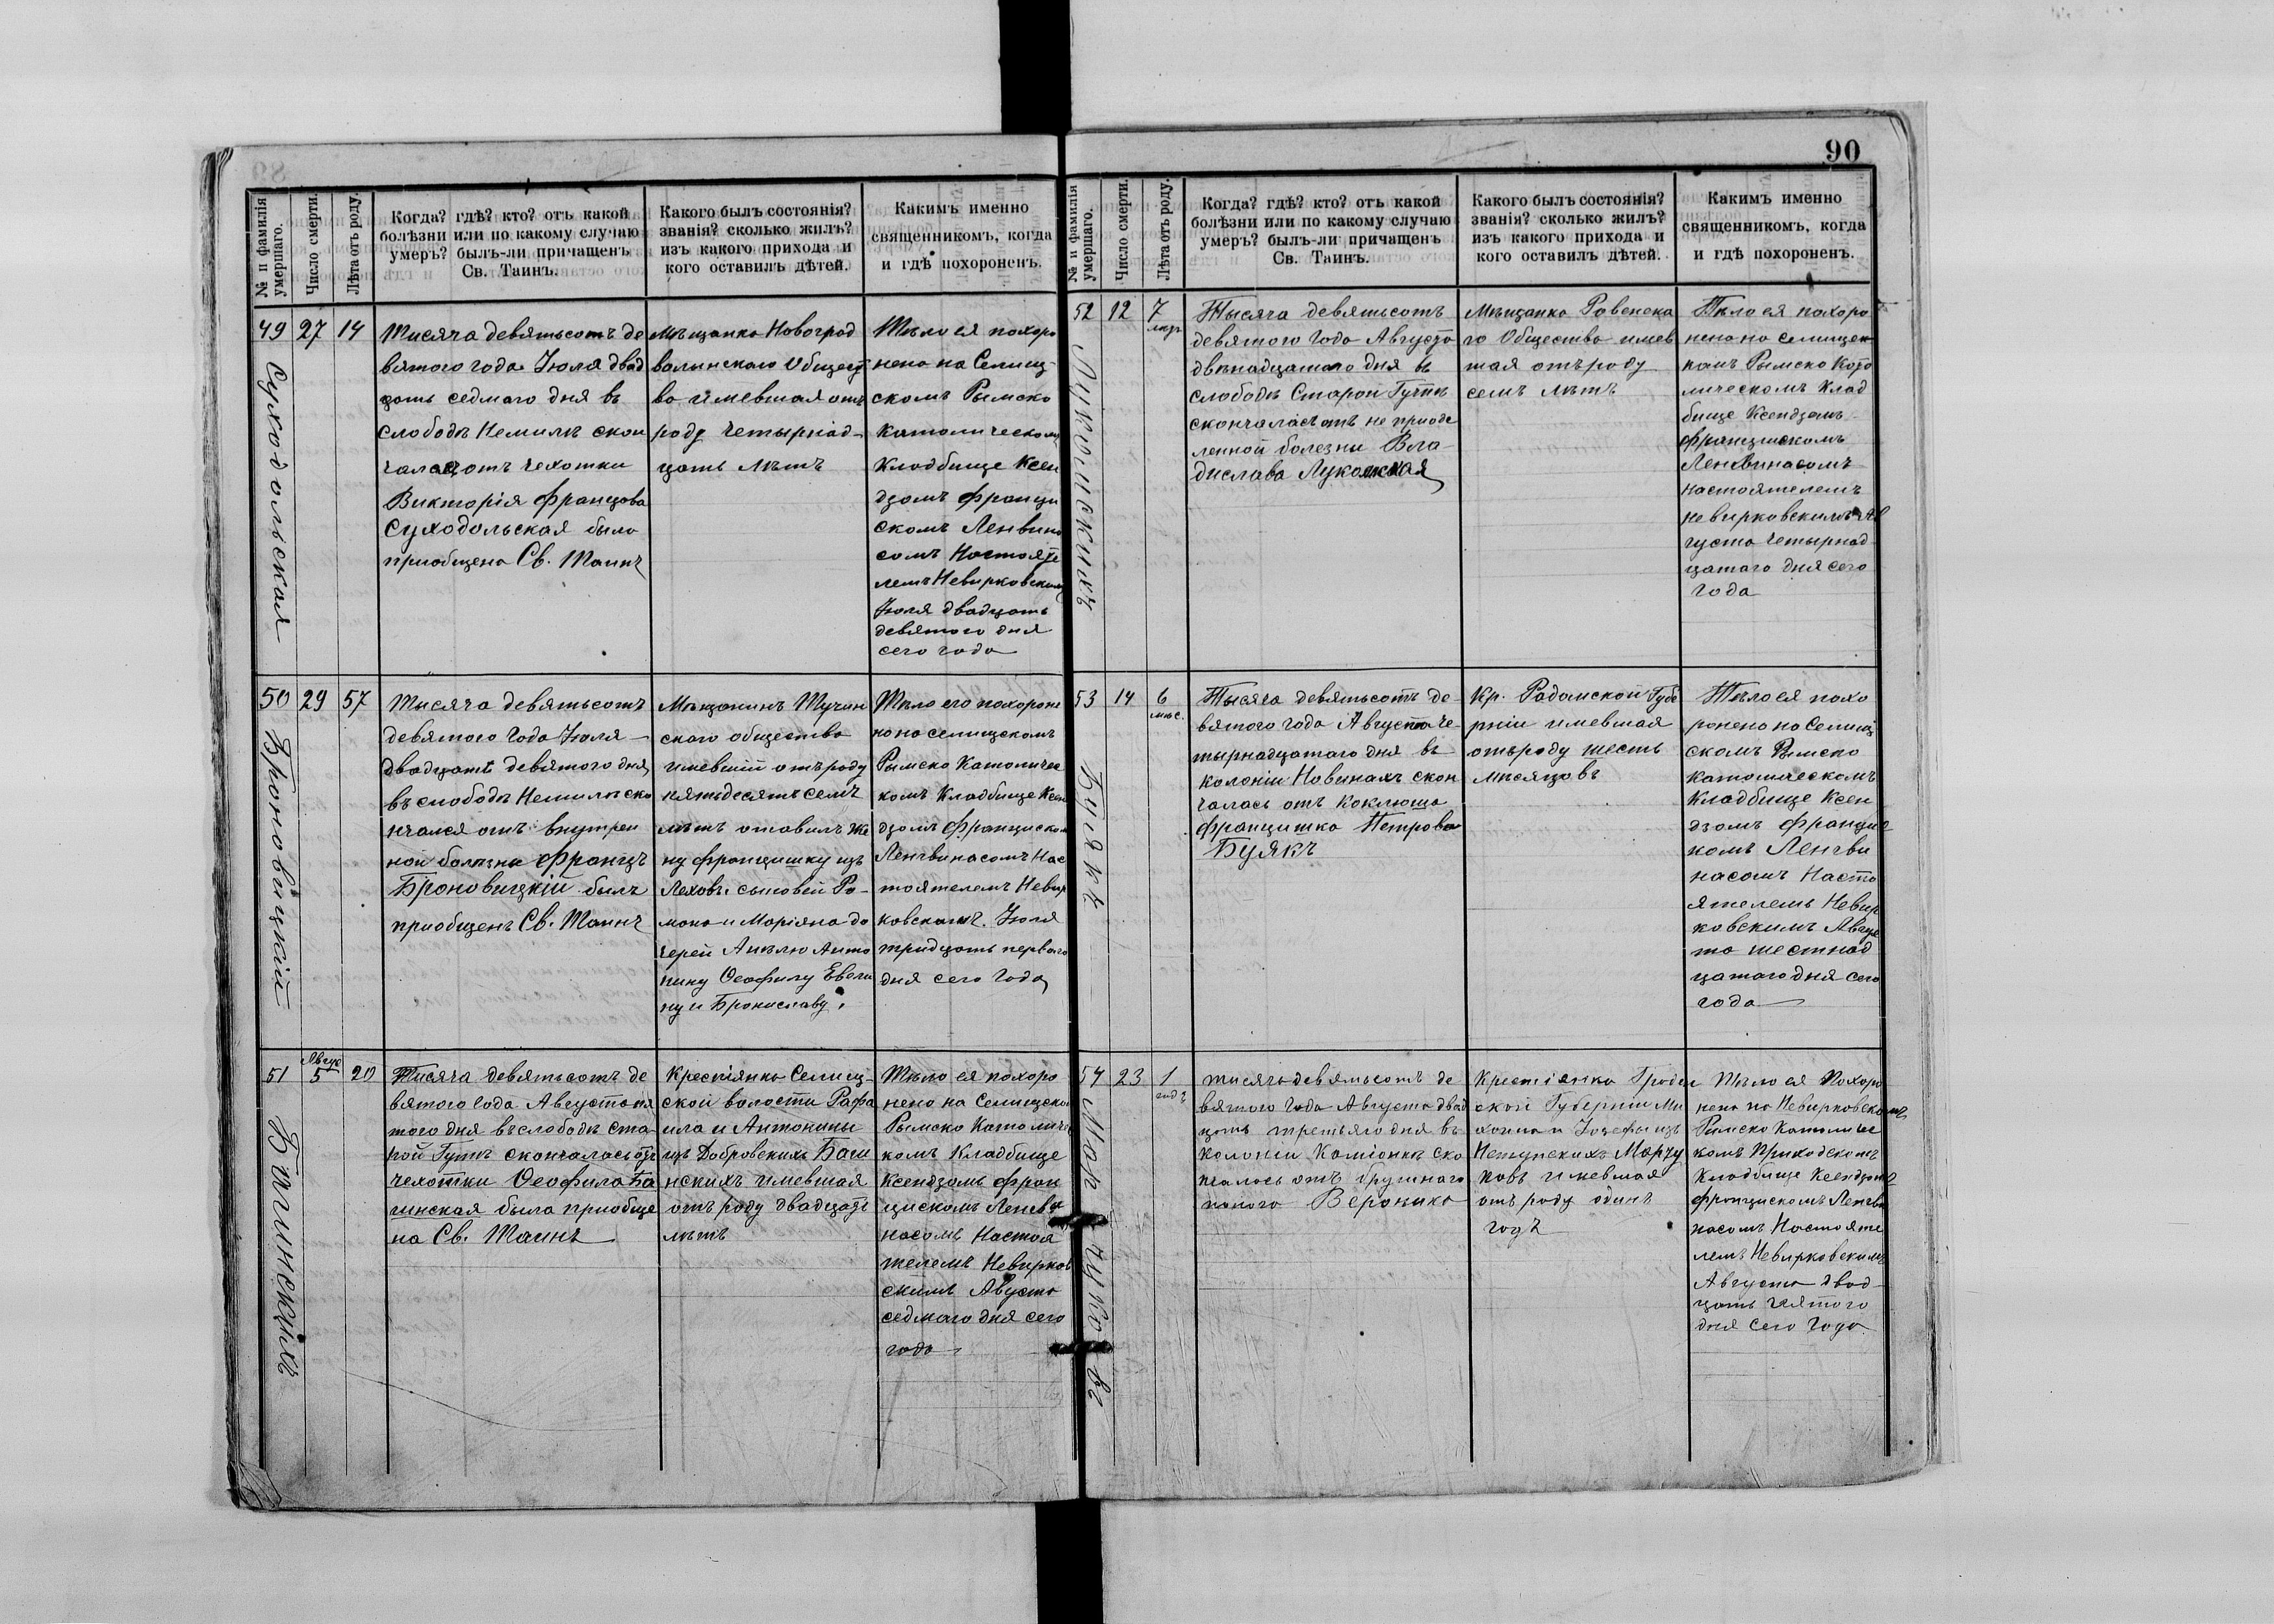 90
№ и фамилія умершаго.
Число смерти.
Лѣта отъ роду.
Когда? гдѣ? кто? отъ какой
болѣзни или по какому случаю
умеръ? былъ-ли причащенъ
Св. Таинъ.
Какого былъ состоянія?
званія? сколько жилъ?
изъ какого прихода и
кого оставилъ дѣтей.
Какимъ именно
священникомъ, когда
и гдѣ похороненъ.
49
Суходольская
27
14
Тисяча девятьсотъ де
вятого года Июля двад
цать седмаго дня въ
слободѣ Немилѣ скон
чалась отъ чехотки
Викторія Францова
Суходольская была
приобщена Св. Таинъ
Мѣщанка Новоград
волынскаго Общест
ва имевшая отъ
роду четырнад-
цать лѣтъ
Тѣло ея похоро
нено на Селищ-
скомъ Рымско
католическомъ
Кладбище Ксен
дзомъ Франци
скомъ Ленвина
сомъ Настояте
лемъ Невирковскимъ
Июля двадцать
девятого дня
сего года
50
Броновицкій
29
57
Тисяча девятьсотъ
девятого Года Июля
двадцать девятого дня
въ слободѣ Немилѣ ско
нчался отъ внутрен
ной болѣзни Францъ
Броновицкій былъ
приобщенъ Св. Таинъ
Мѣщанинъ Тучин
скаго общества
имевшій отъ роду
пятьдесятъ семъ
лѣтъ отовилъ же
ну Францишку изъ
Леховъ сыновей Ро-
мана и Маріяна до
черей Анѣлю Анто
нину Ѳеофилу Евели
ну и Брониславу.
Тѣло его похороне
но на селищскомъ
Рымско Католичес
комъ Кладбище Ксен
дзомъ Францискомъ
Ленгвинасомъ Нас
тоятелемъ Невир
ковскимъ Июля
тридцать первого
дня сего Года
51
Багинскихъ
Авгус
5
20
Тисяча девятьсотъ де
вятого Года Августа пя
того дня въ слободѣ Ста
рой Гутѣ скончалась отъ
чехотки Ѳеофила Ба
гинская была приобще
на Св. Таинъ
Крестіянка Селищ-
ской волости Рафа
ила и Антонины
изъ Добровскихъ Баги
нскихъ имевшая
отъ роду двадцать
лѣтъ
Тѣло ея похоро
нено на Селищско
Рымско Католичес
комъ Кладбище
Ксендзомъ Фран
цискомъ Ленгви
насомъ Настоя
телемъ Невирков
скимъ Августа
седмаго дня сего
года
№ и фамилія умершаго.
Число смерти.
Лѣта отъ роду.
Когда? гдѣ? кто? отъ какой
болѣзни или по какому случаю
умеръ? былъ-ли причащенъ
Св. Таинъ.
Какого былъ состоянія?
званія? сколько жилъ?
изъ какого прихода и
кого оставилъ дѣтей.
Какимъ именно
священникомъ, когда
и гдѣ похороненъ.
52
12
7
Тысяча девятьсотъ
девятого Года Августа
двѣнадцатаго дня въ
слободѣ Старой Гутѣ
скончалась отъ не приоде
ленной болезни Вла-
дислава
Мѣщанка Ровенска
го Общества имев
шая отъ роду
семъ лѣтъ
Тѣло ея похоро
нено на селищен
комъ Рымско Като
лическомъ Клад
бище Ксендзомъ
Францискомъ
Ленгвинасомъ
настоятелемъ
невирковскимъ Ав
густа четырнад-
цатаго дня сего
года
53
Буякъ
14
6
мѣс.
Тысяча девятьсотъ де-
вятого года Августа че-
тырнадцатаго дня въ
колоніи Новинахъ скон
чалась отъ коклюша
Францишка Петрова
Буякъ
Кр. Радомской Губе
рніи имевшая
отъ роду шесть
мѣсяцовъ
Тѣло ея похо
ронено на Селищ
скомъ Рымско
католическомъ
Кладбище Ксен
дзомъ Францис
комъ Ленгви
насомъ Насто
ятелемъ Невир
ковскимъ Авгус
та шестнад
цатаго дня сего
года
54
Марчуковъ
23
1
годъ
тисяча девятьсотъ де
вятого Года Августа двад
цать третьяго дня въ
колоніи Каміонкѣ ско
нчалась отъ брушнаго
Вероника
Крестіянка Гродн
ской Губерніи Ми
хаила и Іозефы изъ
Марчу
ковъ имевшая
отъ роду одинъ
годъ
Тѣло ея Похоро
нено на Невирковскомъ
Рымско Католичес
комъ Приходскомъ
Кладбище Ксендзомъ
Францискомъ Ленгви
насомъ Настояте
лемъ Невирковскимъ
Августа двад-
цать пятого
дня Сего Года